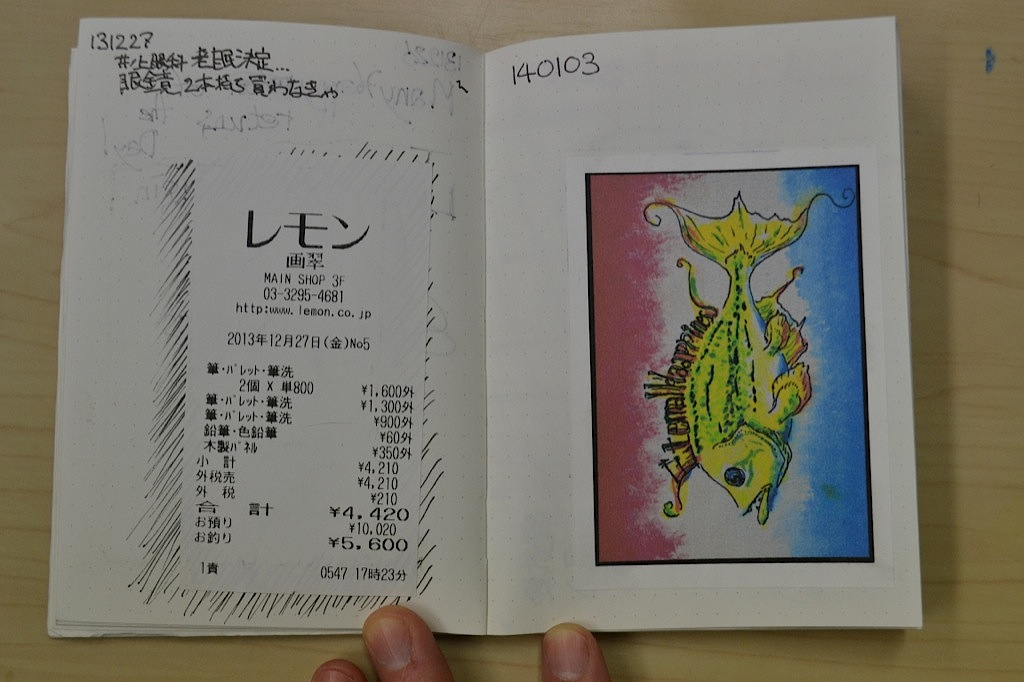 131227
井上眼科 老眼決定...
眼鏡 2本持ち買わなきゃ
レモン
画翠
MAIN SHOP 3F
03-3295-4681
http:www.lemon.co.jp
2013年12月27日(金)No5
筆・パレット・筆洗
2個 X 単800 ¥1,600外
筆・パレット・筆洗 ¥1,300外
筆・パレット・筆洗 ¥900外
鉛筆・色鉛筆 ¥60外
木製パネル ¥350外
小 計 ¥4,210
外税売 ¥4,210
外 税 ¥210
合 計 ¥4,420
お預り ¥10,020
お釣り ¥5,600
1責 0547 17時23分
140103
Eternal Happiness